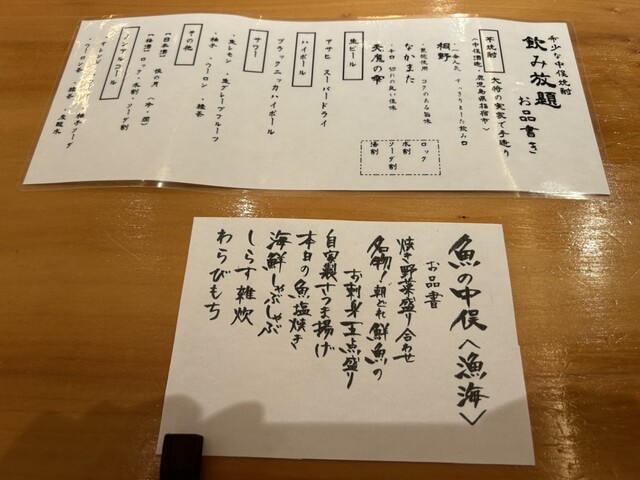 希少な中俣焼酎
飲み放題
お品書き
芋焼酎
大将の実家で手造り
<中俣酒造>鹿児島県指宿市>
桐野
なかまた
・黒麹使用 コクのある旨味
天魔の雫
ロック
水割
ソーダ割
湯割
生ビール
アサヒ スーパードライ
ハイボール
ブラックニッカハイボール
サワー
・生レモン ・生グレープフルーツ
・柚子 ・ウーロン ・緑茶
その他
【日本酒】
【梅酒】 ロック、水割、ソーダ割
ノンアルコール
魚の中俣<漁海>
お品書
焼き野菜盛り合わせ
名物!朝どれ鮮魚の
お刺身五点盛り
自家製さつま揚げ
本日の魚塩焼き
海鮮しゃぶしゃぶ
しらす雑炊
わらびもち